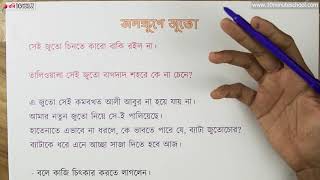 www.10minuteschool.com
জলকূপে জুতো
সেই জুতো চিনতে কারো বাকি রইল না।
তালিওয়ালা সেই জুতো বাগদাদ শহরে কে না চেনে?
এ জুতো সেই কমবখত আলী আবুর না হয়ে যায় না।
আমার নতুন জুতো নিয়ে সে-ই পালিয়েছে।
হাতেনাতে এভাবে না ধরলে, কে ভাবতে পারে যে, ব্যাটা জুতোচোর?
ব্যাটাকে ধরে এনে আচ্ছা সাজা দিতে হবে আজ।
- বলে কাজি চিৎকার করতে লাগলেন।